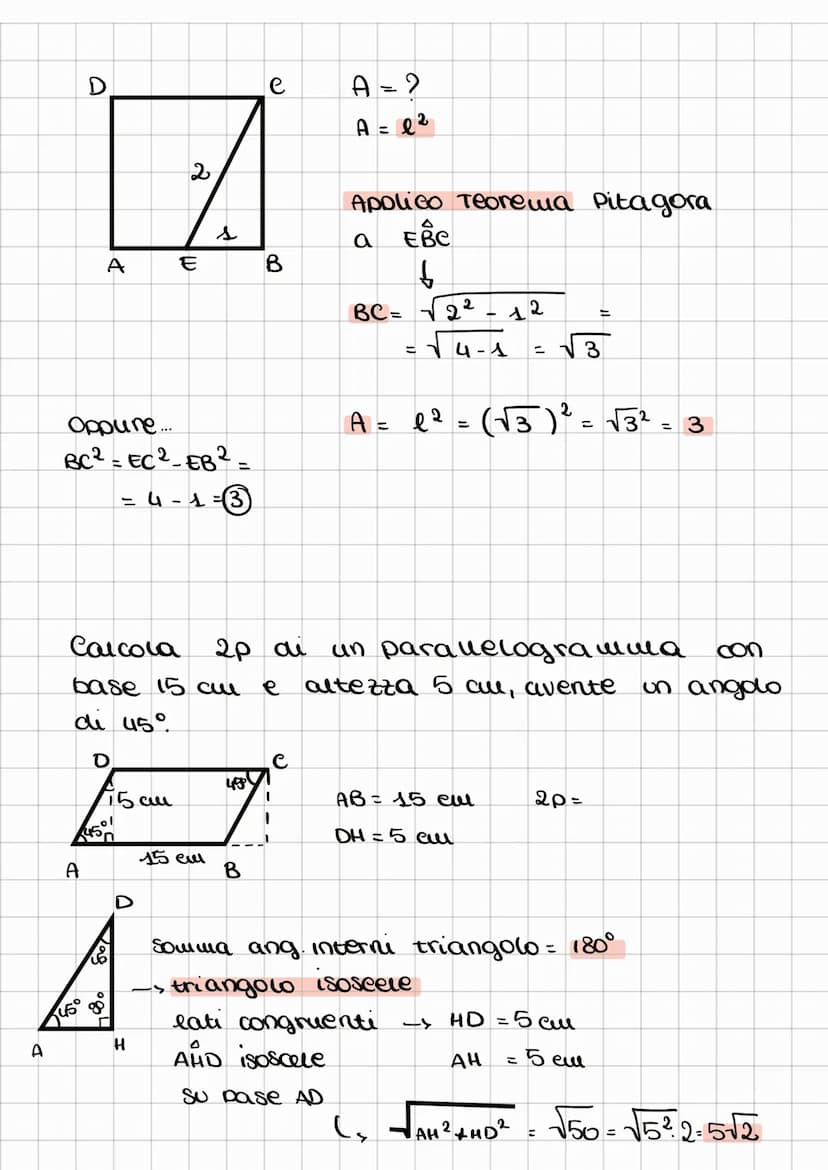 D C
A = ?
A = l²
2
1
A E B
Applico Teorema Pitagora
a EB̂C
↓
BC = √2² - 1² =
= √4-1 = √3
A = l² = (√3)² = √3² = 3
Oppure...
BC² = EC² - EB² =
= 4 - 1 = 3
Calcola 2p di un parallelogramma con
base 15 cm e altezza 5 cm, avente un angolo
di 45°.
D C
45°
5 cm
AB = 15 cm 2p =
45°
DH = 5 cm
15 cm
A B
D
45°
somma ang. interni triangolo = 180°
→ triangolo isoscele
45° 90°
lati congruenti → HD = 5 cm
A H
AĤD isoscele AH = 5 cm
su base AD
↳ √AH² + HD² = √50 = √5²·2 = 5√2